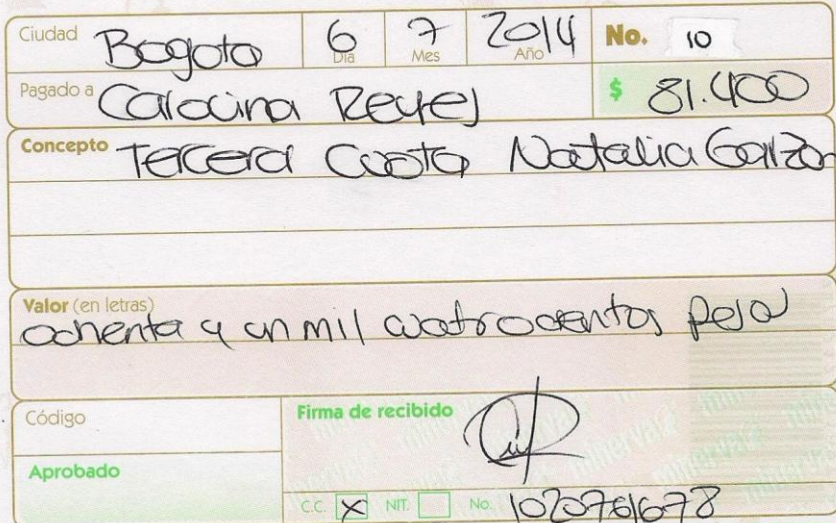 Ciudad Bogota 6 Día 7 Mes 2014 Año No. 10
Pagado a Carolina Reyes $ 81.400
Concepto Tercera Cuota Natalia Garzon
Valor (en letras)
ochenta y un mil cuatrocientos pesos
Código
Firma de recibido
Aprobado
C.C. X NIT. No. 1020761678